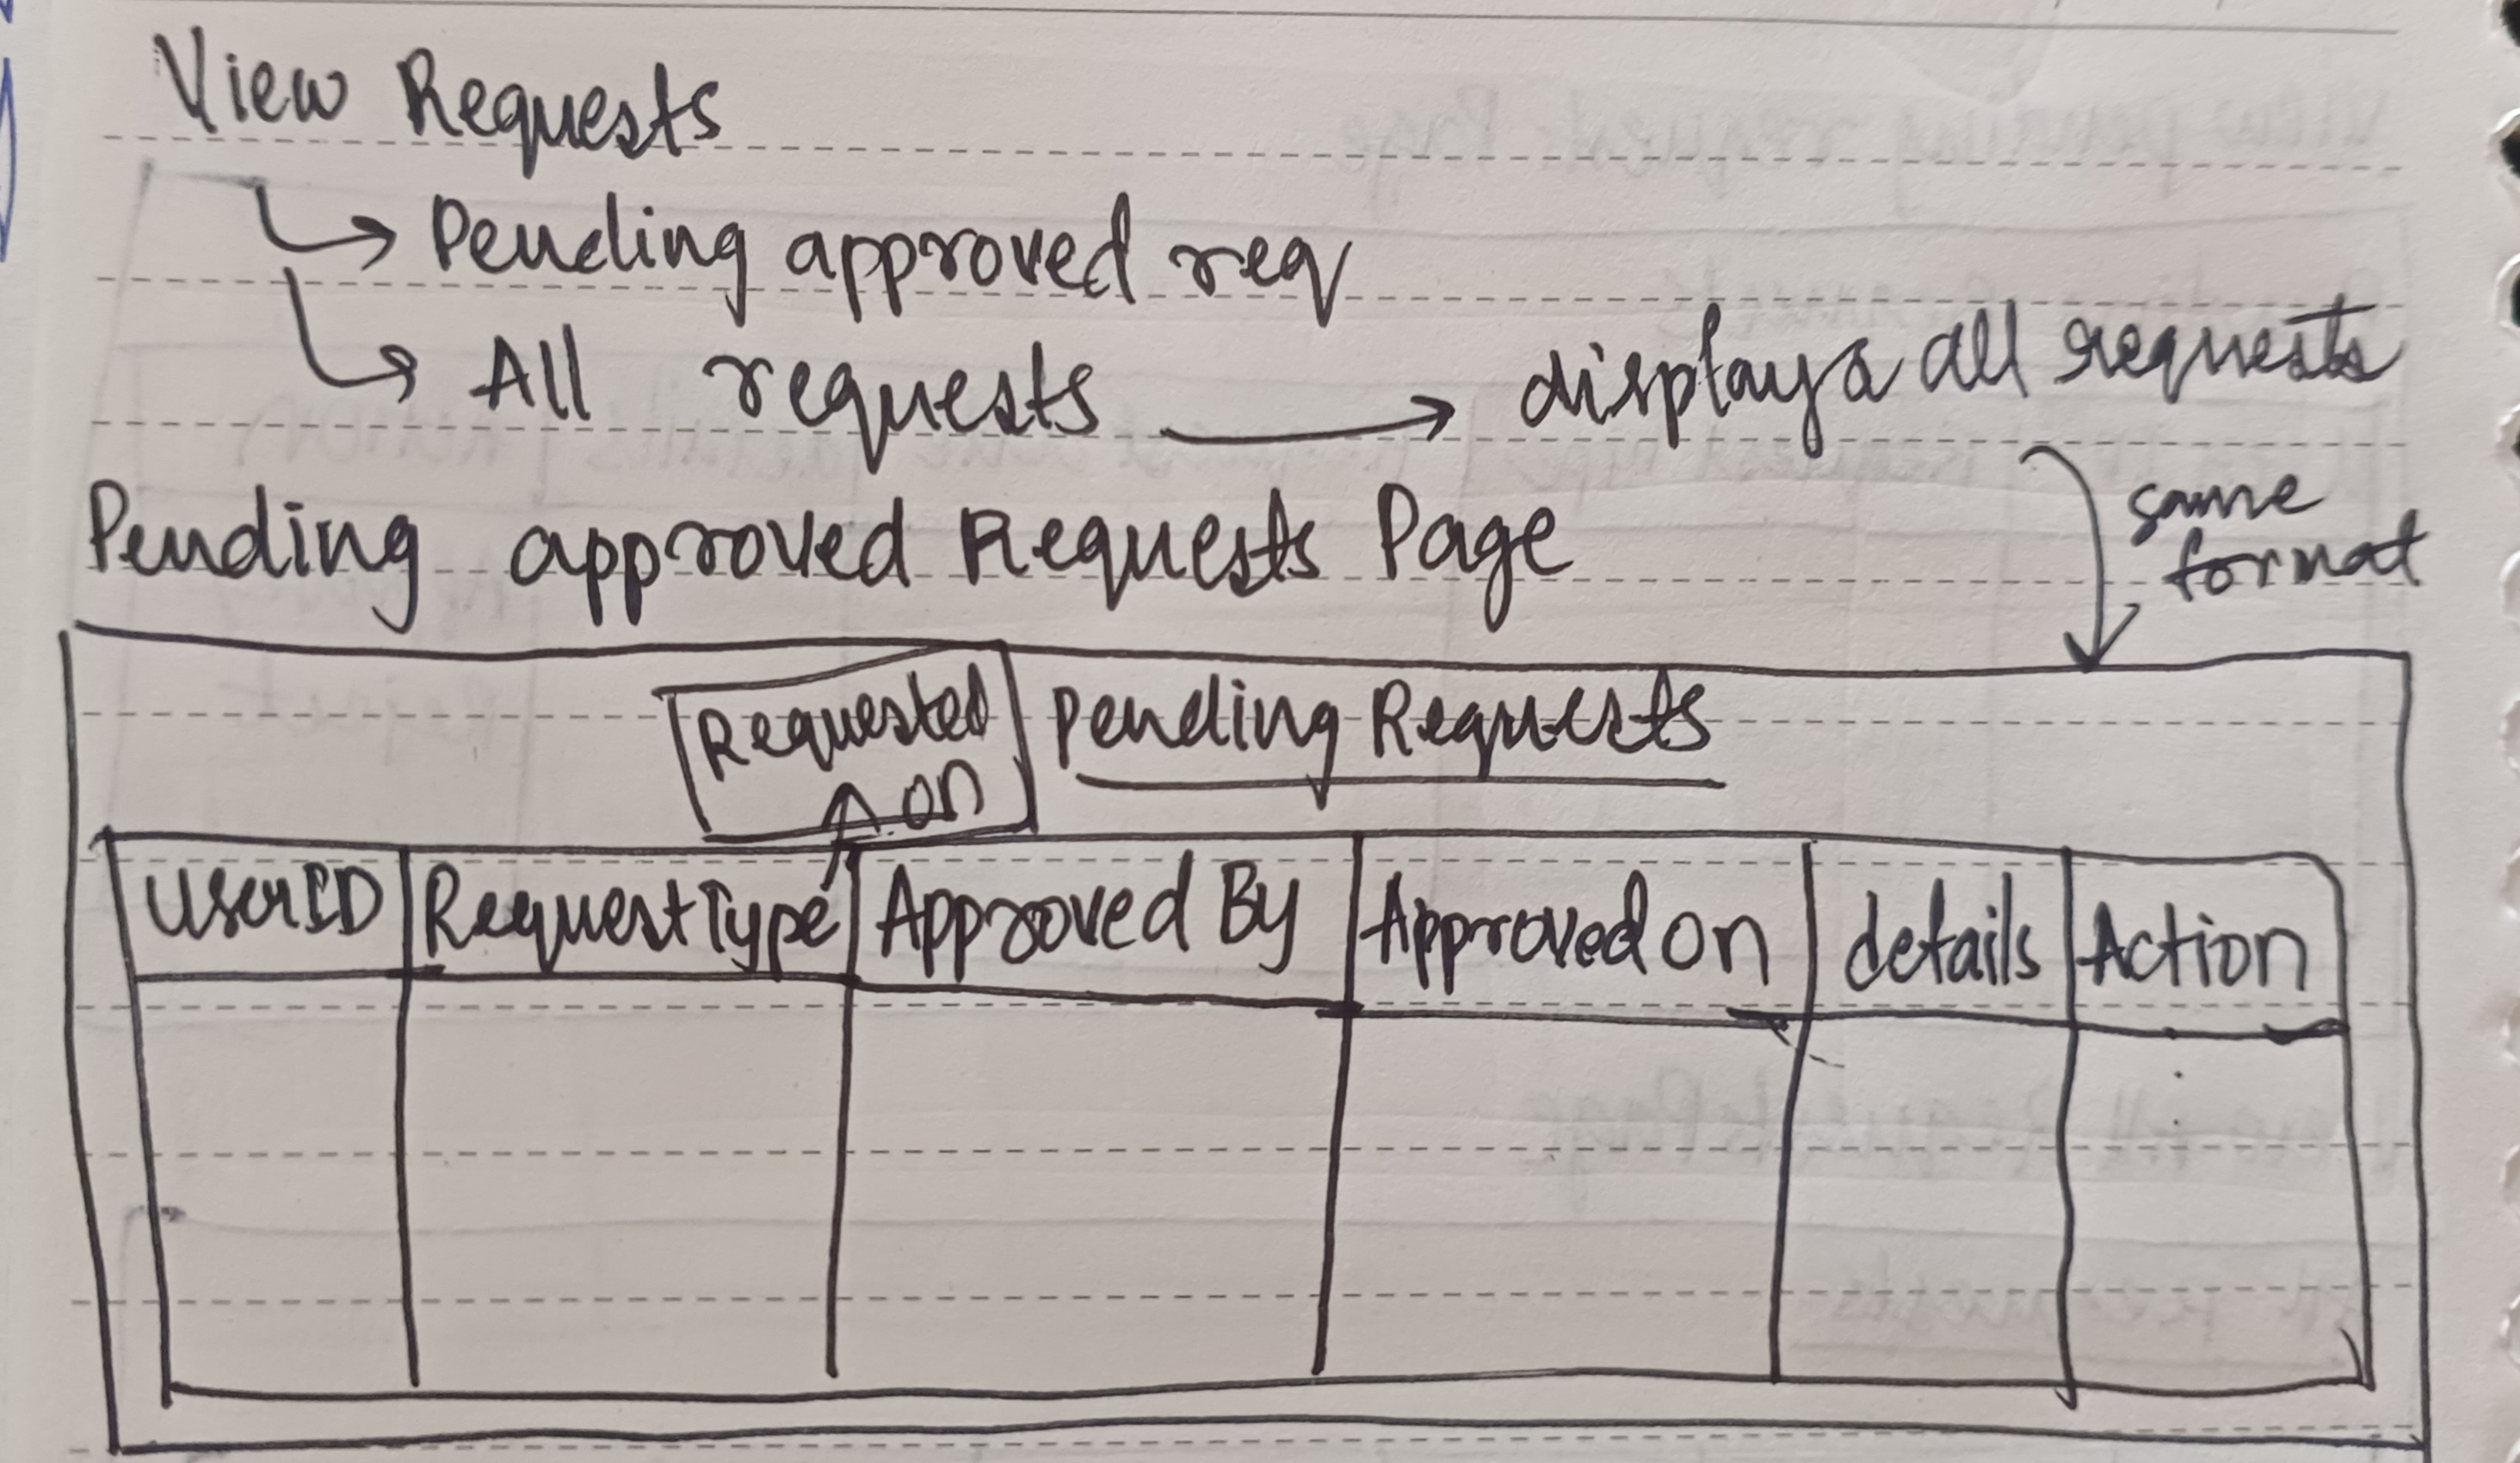 View Requests
Pending approved req
All requests → displays all requests
same
format
Pending approved Requests Page
Requested
on
Pending Requests
UserID RequestType Approved By Approved on details Action